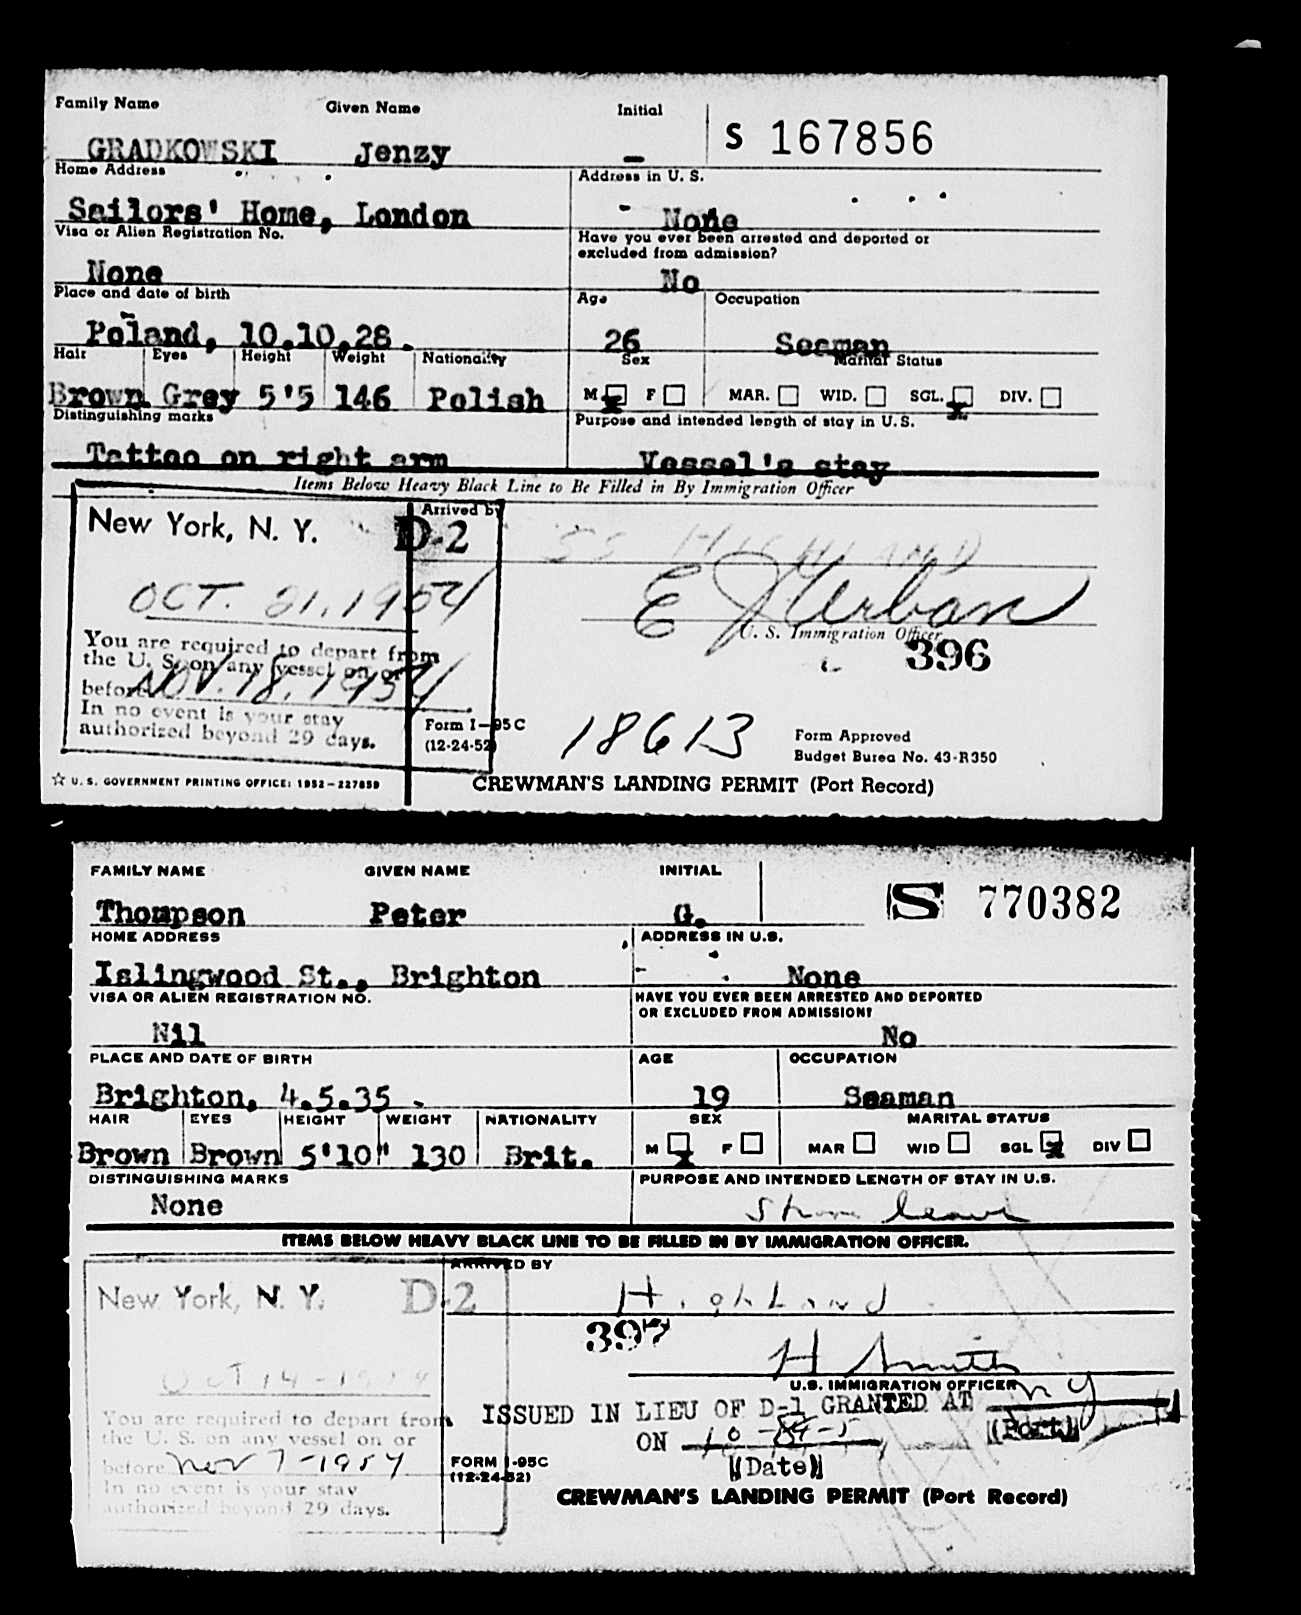 Family Name Given Name Initial
GRADKOWSKI Jenzy - S 167856
Home Address Address in U. S.
Sailors' Home, London - None
Visa or Alien Registration No. Have you ever been arrested and deported or
excluded from admission?
None No
Place and date of birth Age Occupation
Poland, 10.10.28. 26 Seaman
Hair Eyes Height Weight Nationality Sex Marital Status
Brown Grey 5'5 146 Polish M x F MAR. WID. SGL. x DIV.
Distinguishing marks Purpose and intended length of stay in U. S.
Tattoo on right arm Vessel's stay
Items Below Heavy Black Line to Be Filled in By Immigration Officer
New York, N. Y. D-2 Arrived by
SS HIGHLAND
OCT. 21, 1954 E J Urban
You are required to depart from U. S. Immigration Officer
the U. S. on any vessel on or 396
before NOV. 18, 1954
In no event is your stay
authorized beyond 29 days.
Form I-95C
(12-24-52)
18613 Form Approved
Budget Burea No. 43-R350
☆ U. S. GOVERNMENT PRINTING OFFICE: 1952-227859 CREWMAN'S LANDING PERMIT (Port Record)
FAMILY NAME GIVEN NAME INITIAL
Thompson Peter G. S 770382
HOME ADDRESS ADDRESS IN U.S.
Islingwood St., Brighton - None
VISA OR ALIEN REGISTRATION NO. HAVE YOU EVER BEEN ARRESTED AND DEPORTED
OR EXCLUDED FROM ADMISSION?
Nil No
PLACE AND DATE OF BIRTH AGE OCCUPATION
Brighton, 4.5.35. 19 Seaman
HAIR EYES HEIGHT WEIGHT NATIONALITY SEX MARITAL STATUS
Brown Brown 5'10" 130 Brit. M x F MAR WID SGL x DIV
DISTINGUISHING MARKS PURPOSE AND INTENDED LENGTH OF STAY IN U.S.
None Shore leave
ITEMS BELOW HEAVY BLACK LINE TO BE FILLED IN BY IMMIGRATION OFFICER.
ARRIVED BY
New York, N. Y. D-2 Highland
397
H Smith
OCT 14-1954 U.S. IMMIGRATION OFFICER
You are required to depart from ISSUED IN LIEU OF D-1 GRANTED AT NY
the U. S. on any vessel on or ON (Port)
before Nov 7-1954 FORM I-95C (Date)
In no event is your stay (12-24-52)
authorized beyond 29 days. CREWMAN'S LANDING PERMIT (Port Record)